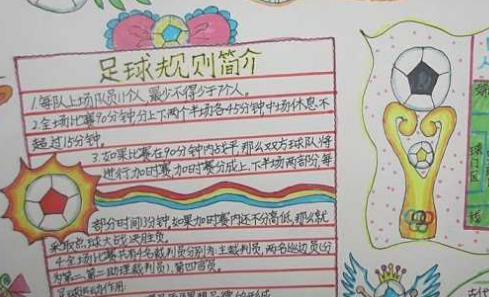 足球规则简介
1.每队上场队员11个人,最少不得少于7个人。
2.全场比赛90分钟分上下两个半场各45分钟,中场休息不
超过15分钟。
3.如果比赛在90分钟内战平,那么双方球队将
进行加时赛,加时赛分成上、下半场两部分,每
部分时间15分钟,如果加时赛内还不分高低,那么就
采取点球大战决胜负。
4.全场比赛共有4名裁判员分别为:主裁判员,两名巡边员(分
为第一、第二助理裁判员)、第四官员。
足球运动作用
古代